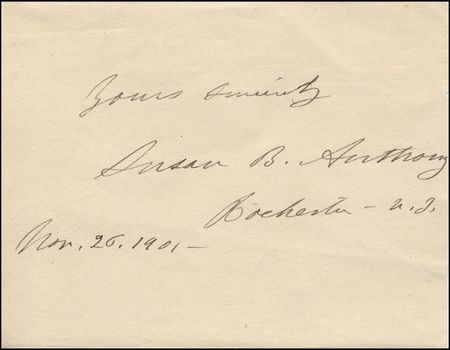 Yours sincerely
Susan B. Anthony
Rochester - N.Y.
Nov. 26. 1901 -